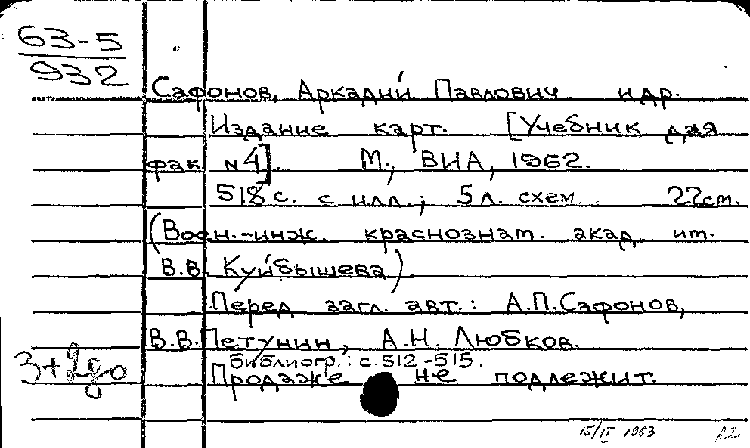 63-5
932
Сафонов, Аркадий Павлович и др.
Издание карт. [Учебник для
фак N4]. М., ВИА, 1962.
518 с. с илл.; 5 л. схем 22 см.
(Воен.-инж. краснознам. акад. им.
В.В. Куйбышева)
Перед загл. авт.: А.П. Сафонов,
В.В. Петунин, А.Н. Любков.
Библиогр.: с. 512-515.
3+2до Продаже не подлежит.
15/II 1963